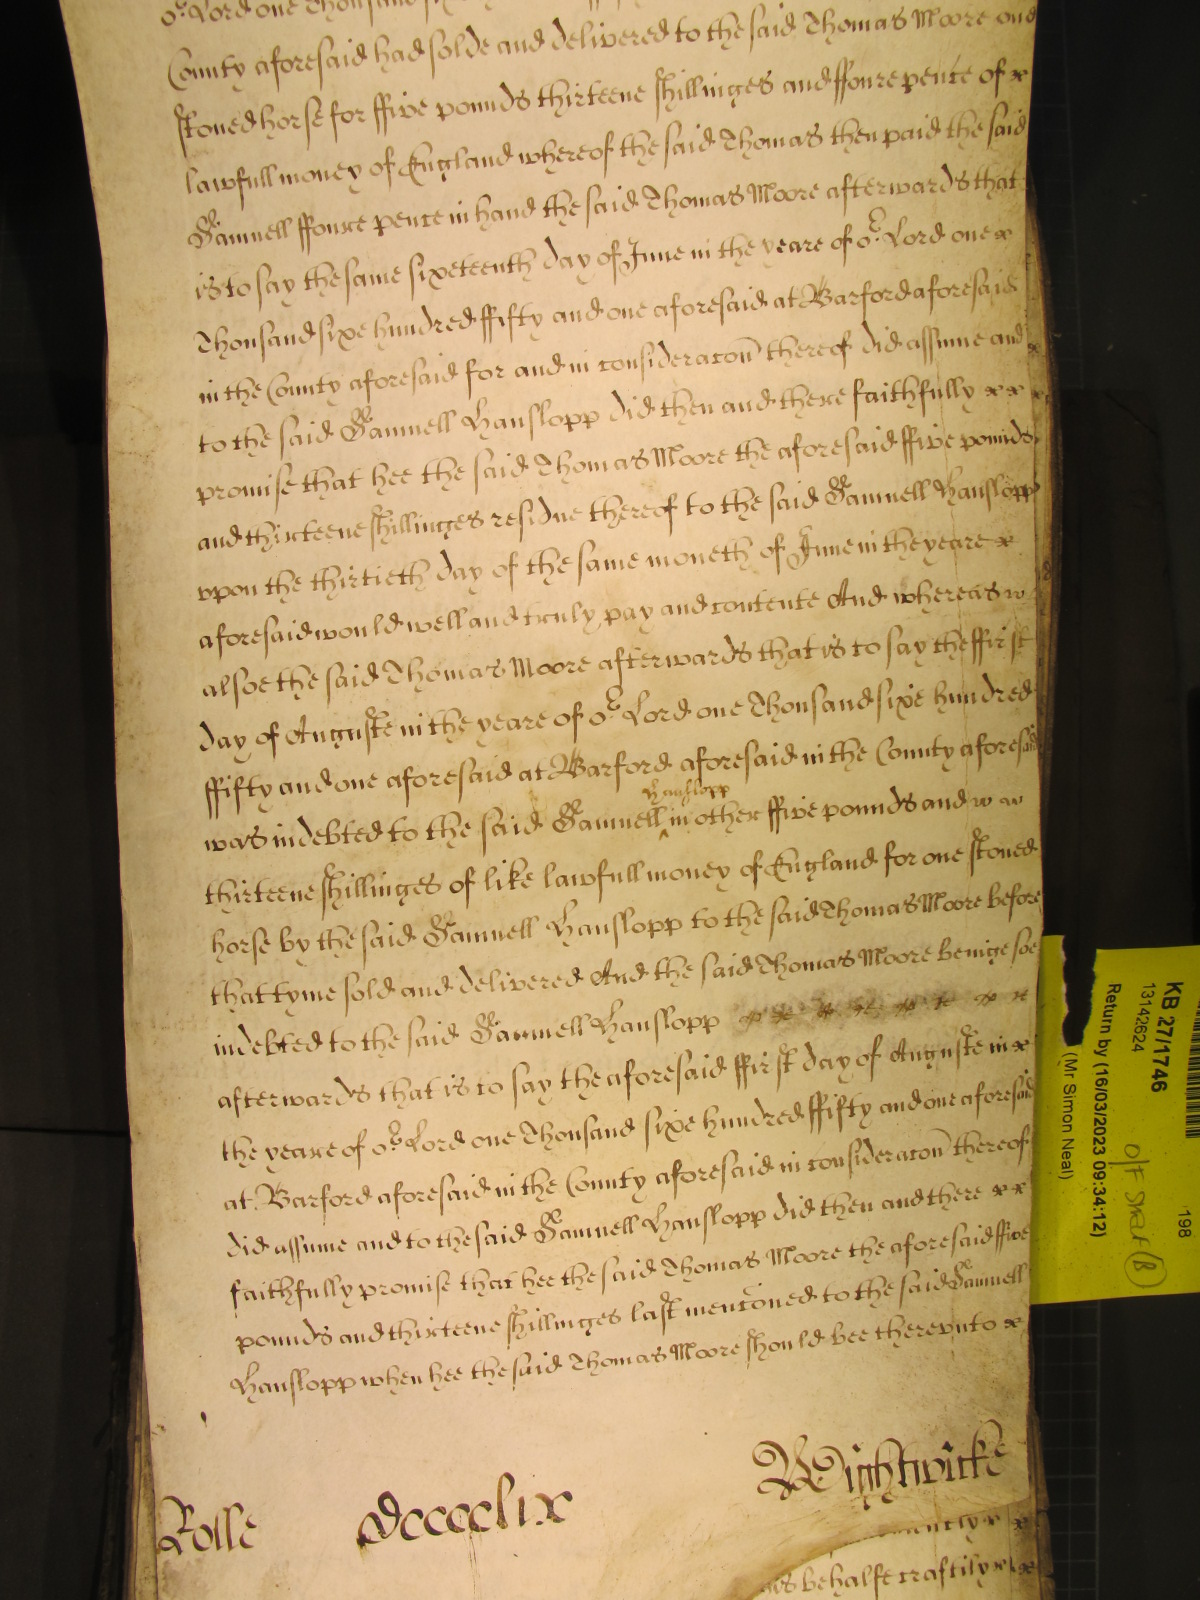 oʳ Lord one Thousand
County aforesaid had solde and delivered to the said Thomas Moore one
stoned horse for ffive pounds thirteene shillinges and ffoure pence of
lawfull money of England whereof the said Thomas then paid the said
Samuell ffoure pence in hand the said Thomas Moore afterwards that
is to say the same sixeteenth day of June in the yeare of oʳ Lord one
Thousand sixe hundred ffifty and one aforesaid at Barford aforesaid
in the County aforesaid for and in consideracon thereof did assume and
to the said Samuell Hanslopp did then and there faithfully
promise that hee the said Thomas Moore the aforesaid ffive pounds
and thirteene shillinges residue thereof to the said Samuell Hanslopp
vpon the thirtieth day of the same moneth of June in the yeare
aforesaid would well and truly pay and contente And whereas
alsoe the said Thomas Moore afterwards that is to say the ffirst
day of Auguste in the yeare of oʳ Lord one Thousand sixe hundred
ffifty and one aforesaid at Barford aforesaid in the County aforesaid
was indebted to the said Samuell ^Hanslopp in other ffive pounds and
thirteene shillinges of like lawfull money of England for one stoned
horse by the said Samuell Hanslopp to the said Thomas Moore before
that tyme sold and delivered And the said Thomas Moore beinge soe
indebted to the said Samuell Hanslopp
afterwards that is to say the aforesaid ffirst day of Auguste in
the yeare of oʳ Lord one Thousand sixe hundred ffifty and one aforesaid
at Barford aforesaid in the County aforesaid in consideracon thereof
did assume and to the said Samuell Hanslopp did then and there
faithfully promise that hee the said Thomas Moore the aforesaid ffive
pounds and thirteene shillinges last menconed to the said Samuell
Hanslopp when hee the said Thomas Moore should bee therevnto
Rolle Dcccclix Wightwicke
behalfe craftily
KB 27/1746
13142624
198
Return by (16/03/2023 09:34:12)
(Mr Simon Neal)